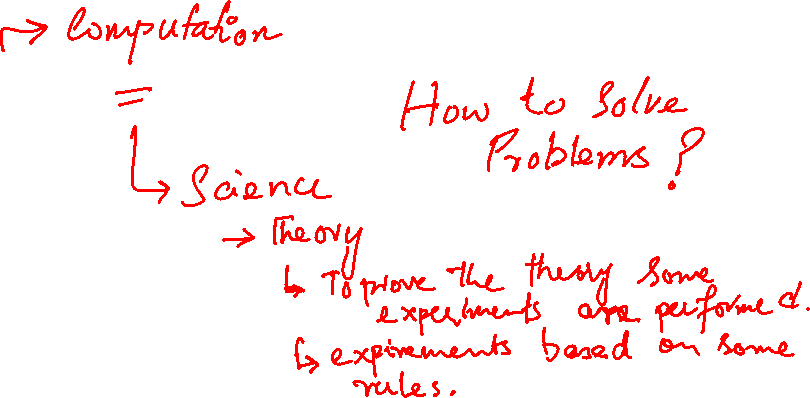 → Computation
How to Solve
Problems?
→ Science
→ Theory
↳ To prove the theory some
experiments are performed.
↳ expirements based on some
rules.